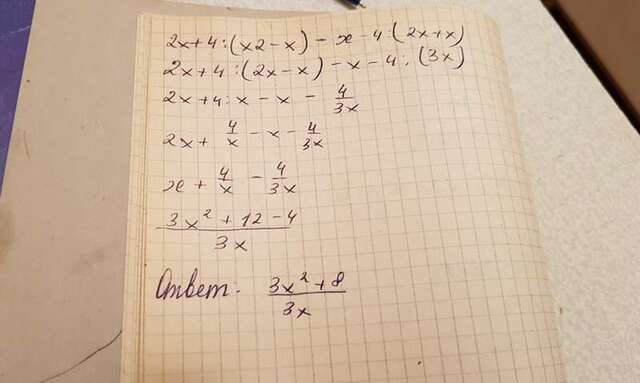 2x+4:(x2-x)-x-4:(2x+x)
2x+4:(2x-x)-x-4:(3x)
2x+4:x-x-4/3x
2x+4/x-x-4/3x
x+4/x-4/3x
3x²+12-4/3x
Ответ: 3x²+8/3x